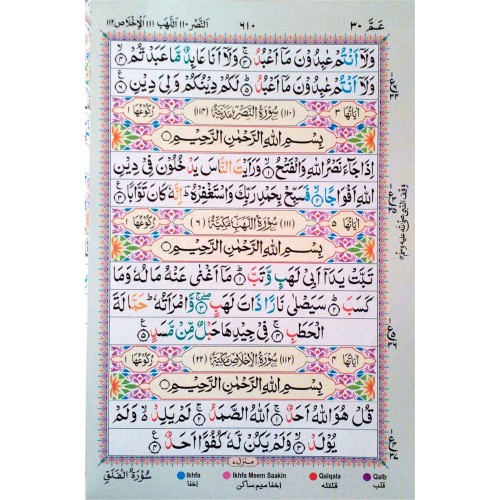 عَمَّ ٣٠
٦١٠
اَلنَّصْر ١١٠ اَللَّهَب ١١١ اَلْاِخْلَاص ١١٢
وَلَاۤ اَنْتُمْ عٰبِدُوْنَ مَاۤ اَعْبُدُ ۚ۝٣ وَلَاۤ اَنَا عَابِدٌ مَّا عَبَدْتُّمْ ۙ۝٤
وَلَاۤ اَنْتُمْ عٰبِدُوْنَ مَاۤ اَعْبُدُ ؕ۝٥ لَكُمْ دِيْنُكُمْ وَلِيَ دِيْنِ ۝٦
اٰيَاتُهَا ٣ (١١٠) سُوْرَةُ النَّصْرِ مَدَنِيَّةٌ (١١٤) رُكُوْعُهَا ١
بِسْمِ اللّٰهِ الرَّحْمٰنِ الرَّحِيْمِ
اِذَا جَآءَ نَصْرُ اللّٰهِ وَالْفَتْحُ ۙ۝١ وَرَاَيْتَ النَّاسَ يَدْخُلُوْنَ فِيْ دِيْنِ
اللّٰهِ اَفْوَاجًا ۙ۝٢ فَسَبِّحْ بِحَمْدِ رَبِّكَ وَاسْتَغْفِرْهُ ؕ اِنَّهٗ كَانَ تَوَّابًا ۝٣
اٰيَاتُهَا ٥ (١١١) سُوْرَةُ اللَّهَبِ مَكِّيَّةٌ (٦) رُكُوْعُهَا ١
بِسْمِ اللّٰهِ الرَّحْمٰنِ الرَّحِيْمِ
تَبَّتْ يَدَاۤ اَبِيْ لَهَبٍ وَّتَبَّ ؕ۝١ مَاۤ اَغْنٰى عَنْهُ مَالُهٗ وَمَا
كَسَبَ ؕ۝٢ سَيَصْلٰى نَارًا ذَاتَ لَهَبٍ ۚۖ۝٣ وَّامْرَاَتُهٗ ؕ حَمَّالَةَ
الْحَطَبِ ۚ۝٤ فِيْ جِيْدِهَا حَبْلٌ مِّنْ مَّسَدٍ ۝٥
اٰيَاتُهَا ٤ (١١٢) سُوْرَةُ الْاِخْلَاصِ مَكِّيَّةٌ (٢٢) رُكُوْعُهَا ١
بِسْمِ اللّٰهِ الرَّحْمٰنِ الرَّحِيْمِ
قُلْ هُوَ اللّٰهُ اَحَدٌ ۚ۝١ اَللّٰهُ الصَّمَدُ ۚ۝٢ لَمْ يَلِدْ ۙ۬ وَلَمْ
يُوْلَدْ ۙ۝٣ وَلَمْ يَكُنْ لَّهٗ كُفُوًا اَحَدٌ ۝٤
منزل ٧
سُوْرَةُ الْفَلَقِ
Ikhfa
اخفا
Ikhfa Meem Saakin
اخفا میم ساکن
Qalqala
قلقلہ
Qalb
قلب